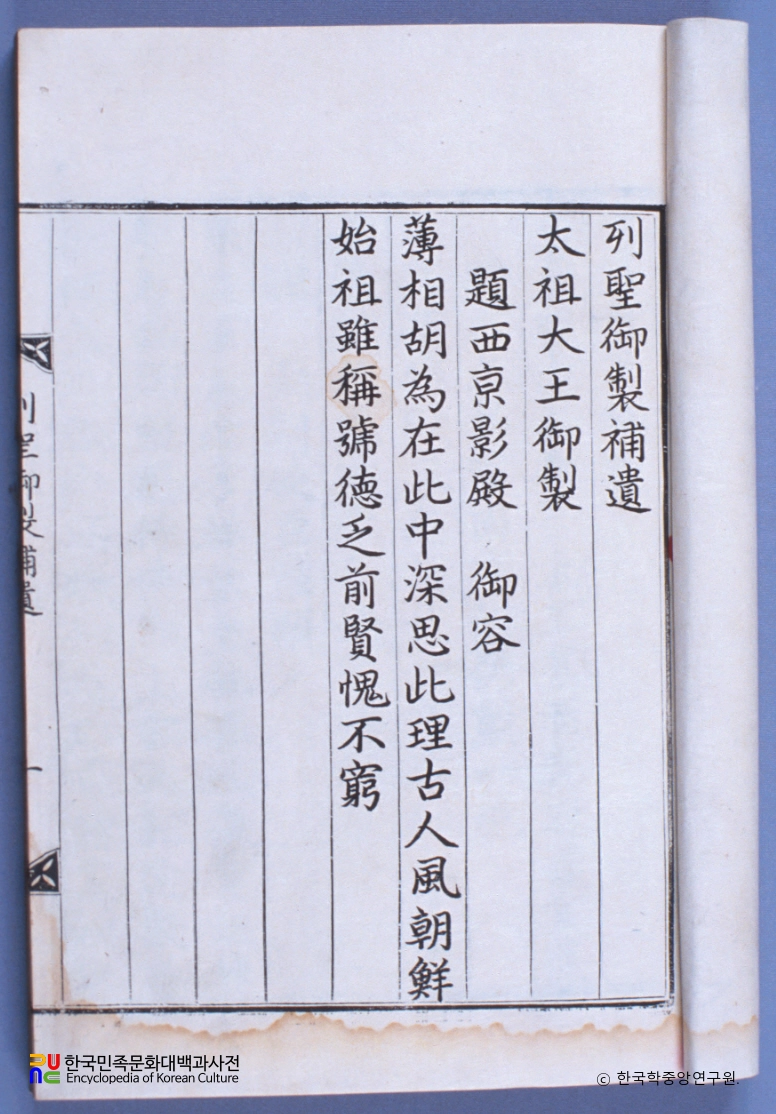 列聖御製補遺
太祖大王御製
題西京影殿 御容
薄相胡為在此中深思此理古人風朝鮮
始祖雖稱號德乏前賢愧不窮
列聖御製補遺
一
한국민족문화대백과사전
Encyclopedia of Korean Culture
ⓒ 한국학중앙연구원.